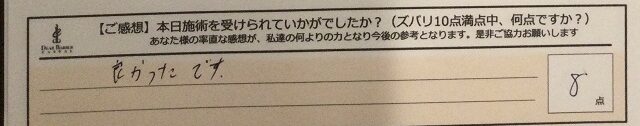 【ご感想】本日施術を受けられていかがでしたか？（ズバリ10点満点中、何点ですか？）
あなた様の率直な感想が、私達の何よりの力となり今後の参考となります。是非ご協力お願いします
DEAR BARBER
良かったです
8
点